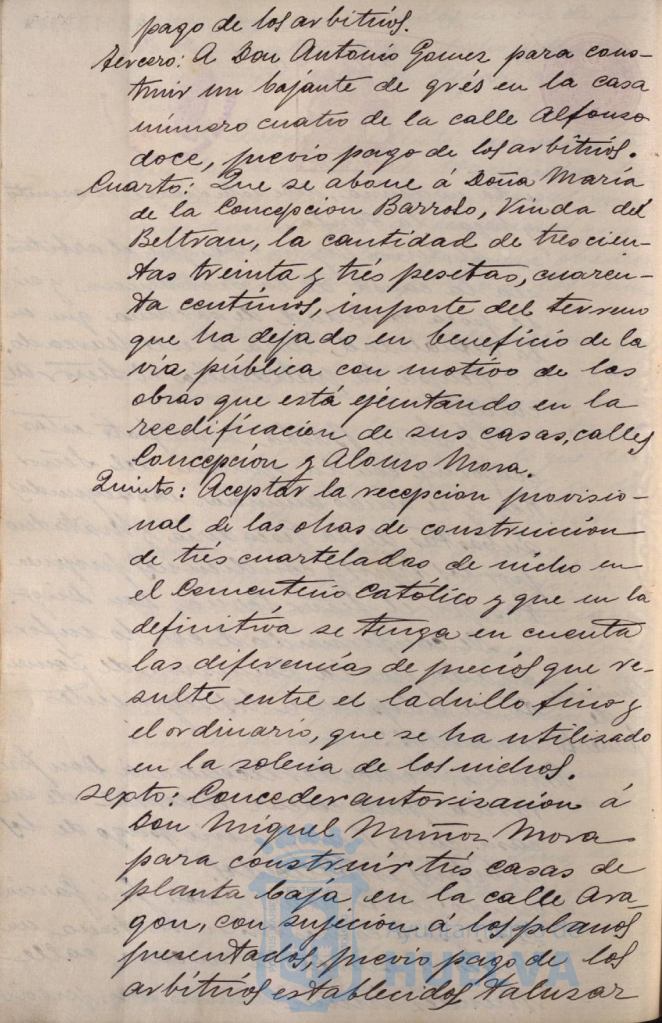 pago de los arbitrios.
tercero: A Don Antonio Gomez para cons-
truir un bajante de grés en la casa
número cuatro de la calle Alfonso
doce, previo pago de los arbitrios.
Cuarto: Que se abone á Doña María
de la Concepcion Barroso, Viuda del
Beltran, la cantidad de trescien-
tas treinta y trés pesetas, cuaren-
ta centimos, importe del terreno
que ha dejado en beneficio de la
vía pública con motivo de las
obras que está ejecutando en la
reedificación de sus casas, calles
Concepción y Alonso Mora.
Quinto: Aceptar la recepcion provisio-
nal de las obras de construccion
de trés cuarteladas de nicho en
el Cementerio Católico y que en la
definitiva se tenga en cuenta
las diferencias de precios que re-
sulte entre el ladrillo fino y
el ordinario, que se ha utilizado
en la solería de los nichos.
Septo: Conceder autorisacion á
Don Miguel Muñoz Mora
para construir trés casas de
planta baja en la calle Ara-
gon, con sujecion á los planos
presentados, previo pago de los
arbitrios establecidos
Ayuntamiento de
HUELVA